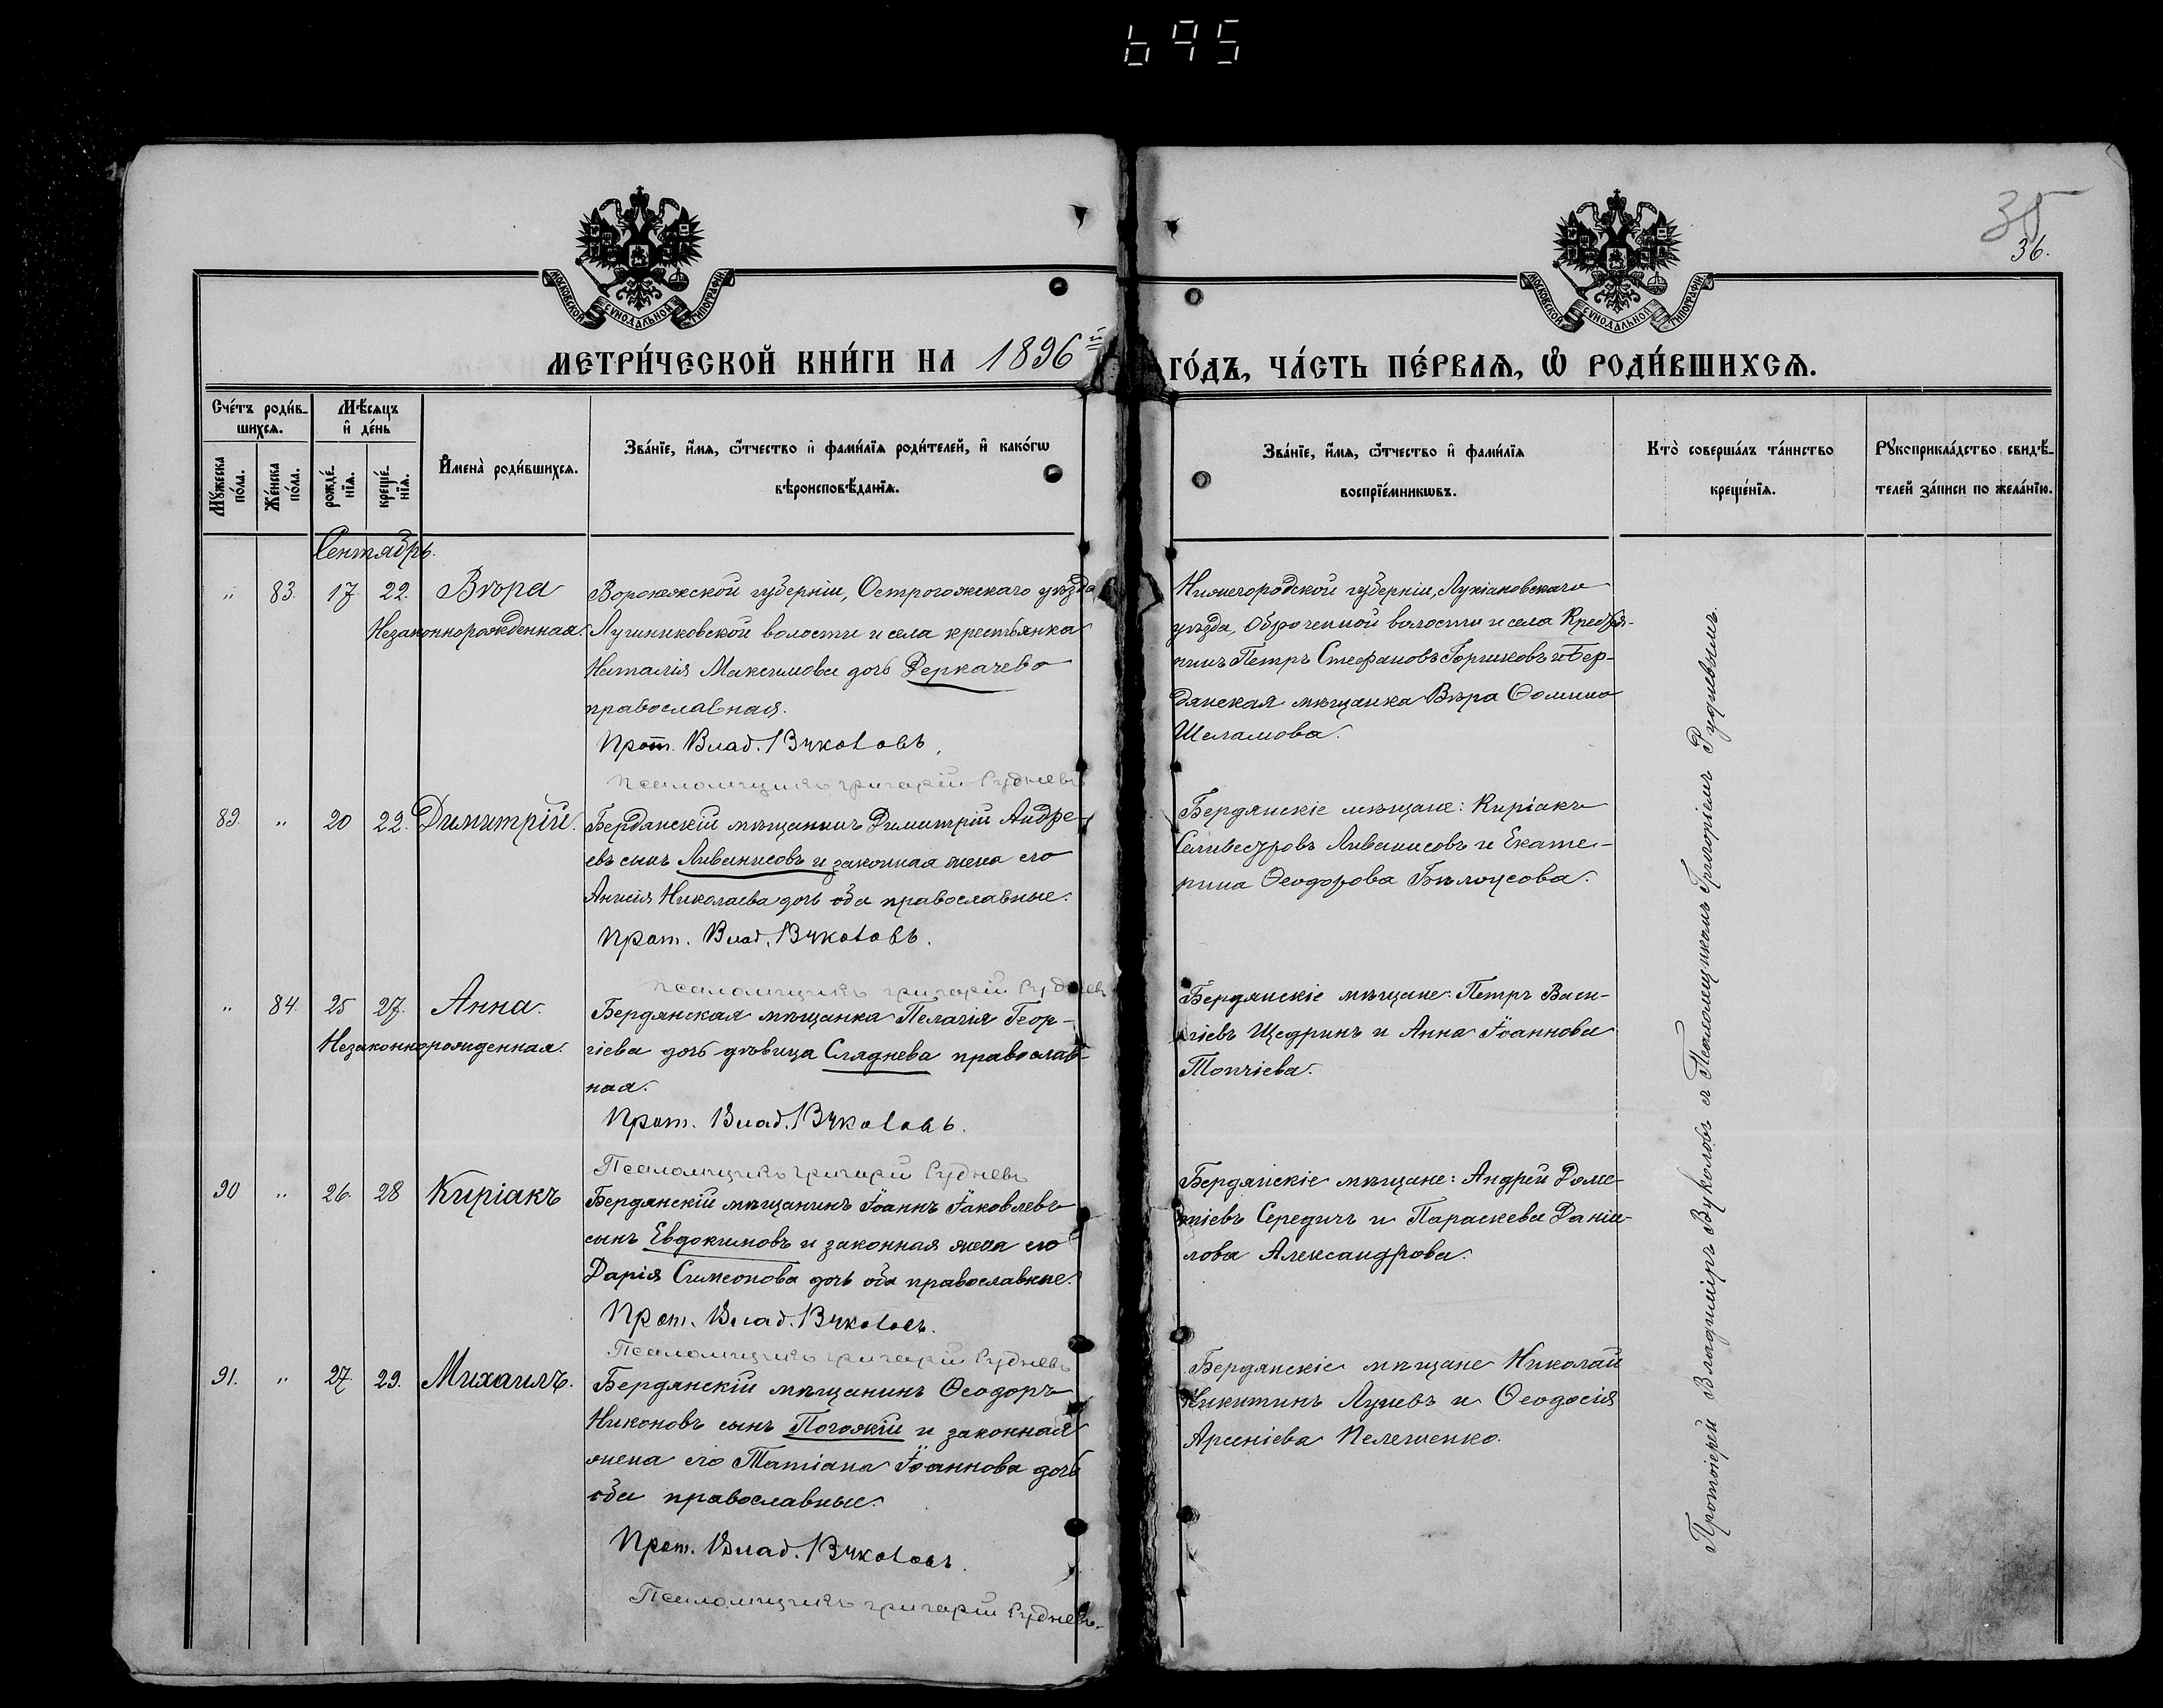 695
35
36.
МОСКОВСКОЙ СѴНОДАЛЬНОЙ ТИПОГРАФІИ
МОСКОВСКОЙ СѴНОДАЛЬНОЙ ТИПОГРАФІИ
МЕТРИ́ЧЕСКОЙ КНИ́ГИ НА 1896й ГО́ДЪ, ЧА́СТЬ ПЕ́РВАѦ, Ѡ РОДИ́ВШИХСѦ.
Сче́тъ роди́в-
шихсѧ.
Мꙋжеска по́ла.
Же́нска по́ла.
Мѣ́сѧцъ
и҆ де́нь
рожде́нїѧ.
креще́нїѧ.
И҆мена̀ роди́вшихсѧ.
Зва́нїе, и҆́мѧ, ѻ҆́тчество и҆ фами́лїѧ роди́телей, и҆ како́гѡ
вѣроисповѣ́данїѧ.
Зва́нїе, и҆́мѧ, ѻ҆́тчество и҆ фами́лїѧ
воспрїе́мникѡвъ.
Кто̀ соверша́лъ та́инство
креще́нїѧ.
Рꙋкоприкла́дство свидѣ́-
телей за́писи по жела́нїю.
Сентябрь.
" 83. 17. 22. Вѣра
Незаконнорожденная.
Воронежской губерніи, Острогожскаго уѣзда,
Лушниковской волости и села крестьянка
Наталія Максимова дочь Деркачева
православная.
Прот. Влад. Вуколовъ.
Псаломщикъ Григорій Рудневъ
Нижегородской губерніи, Лукіановскаго
уѣзда, Оброченной волости и села
Петръ Стефановъ Горшковъ и Бер-
дянская мѣщанка Вѣра Ѳомина
Шеламова.
89. " 20 22. Димитрій.
Бердянскій мѣщанинъ Димитрій Андре-
евъ сынъ Ливанисовъ и законная жена его
Анисія Николаева дочь оба православные.
Прот. Влад. Вуколовъ.
Псаломщикъ Григорій Рудневъ
Бердянскіе мѣщане: Киріакъ
Селивестровъ Ливанисовъ и Екате-
рина Ѳеодорова Бѣлоусова.
" 84. 25 27. Анна.
Незаконнорожденная.
Бердянская мѣщанка Пелагія Геор-
гіева дочь дѣвица Сляднева православ-
ная.
Прот. Влад. Вуколовъ.
Псаломщикъ Григорій Рудневъ
Бердянскіе мѣщане: Петръ Васи-
ліевъ Щедринъ и Анна Іоаннова
Топчіева.
90 " 26. 28 Киріакъ
Бердянскій мѣщанинъ Іоаннъ Іаковлевъ
сынъ Евдокимовъ и законная жена его
Дарія Симеонова дочь оба православные.
Прот. Влад. Вуколовъ.
Псаломщикъ Григорій Рудневъ
Бердянскіе мѣщане: Андрей Доме-
тіевъ Середичъ и Параскева Даніи-
лова Александрова.
91. " 27. 29. Михаилъ.
Бердянскій мѣщанинъ Ѳеодоръ
Никоновъ сынъ Погожій и законная
жена его Татіана Іоаннова дочь
оба православные.
Прот. Влад. Вуколовъ.
Псаломщикъ Григорій Рудневъ.
Бердянскіе мѣщане Николай
Никитинъ Луневъ и Ѳеодосія
Арсеніева Пелешенко.
Протоіерей Владиміръ Вуколовъ съ Псаломщикомъ Григоріемъ Рудневымъ.